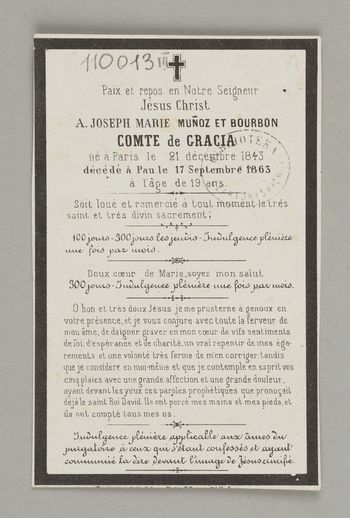 110013 III
Paix et repos en Notre Seigneur
Jésus Christ
A. JOSEPH MARIE MUÑOZ ET BOURBON
COMTE de GRACIA
né à Paris le 21 décembre 1843
décédé à Pau le 17 Septembre 1863
à l'âge de 19 ans.
Soit loué et remercié à tout moment le très
saint et très divin sacrement;
100 jours-300 jours les jeudis-Indulgence plénière
une fois par mois.
Doux cœur de Marie, soyez mon salut
300 jours-Indulgence plénière une fois par mois.
O bon et très doux Jésus je me prosterne à genoux en
votre présence, et je vous conjure avec toute la ferveur de
mon âme, de daigner graver en mon cœur de vifs sentiments
de foi, d'espérance et de charité, un vrai repentir de mes éga-
rements et une volonté très ferme de m'en corriger, tandis
que je considère en moi-même et que je contemple en esprit vos
cinq plaies avec une grande affection et une grande douleur,
ayant devant les yeux ces paroles prophétiques que prononçait
déjà le saint Roi David. Ils ont percé mes mains et mes pieds, et
ils ont compté tous mes os.
Indulgence plénière applicable aux âmes du
purgatoire à ceux qui s'étant confessés et ayant
communié la dire devant l'image de Jésus crucifié.